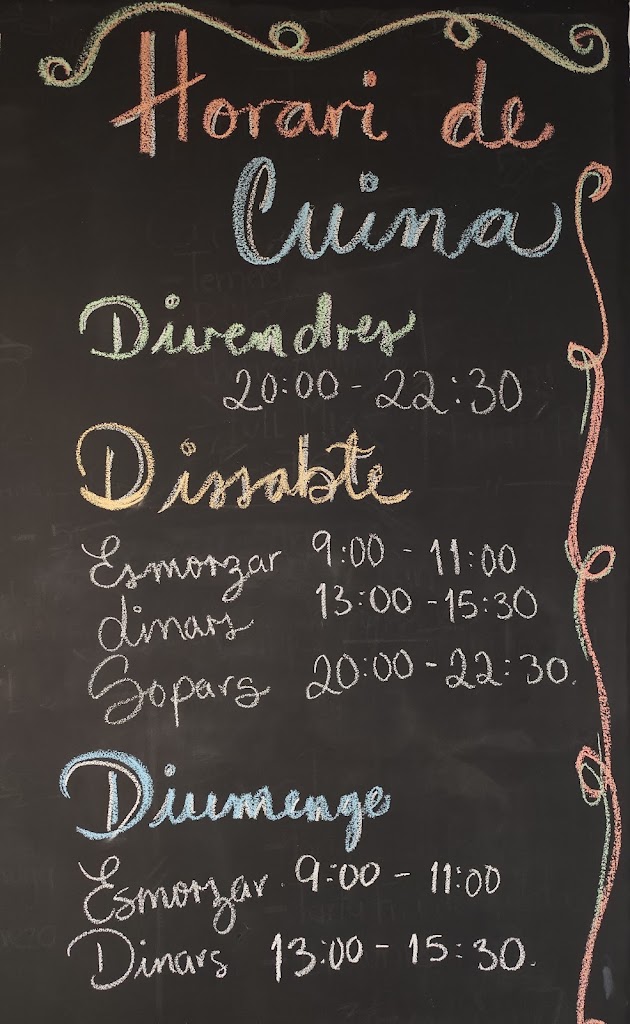 Horari de
Cuina
Divendres
20:00 - 22:30
Dissabte
Esmorzar 9:00 - 11:00
dinars 13:00 - 15:30
Sopars 20:00 - 22:30.
Diumenge
Esmorzar. 9:00 - 11:00
Dinars 13:00 - 15:30.